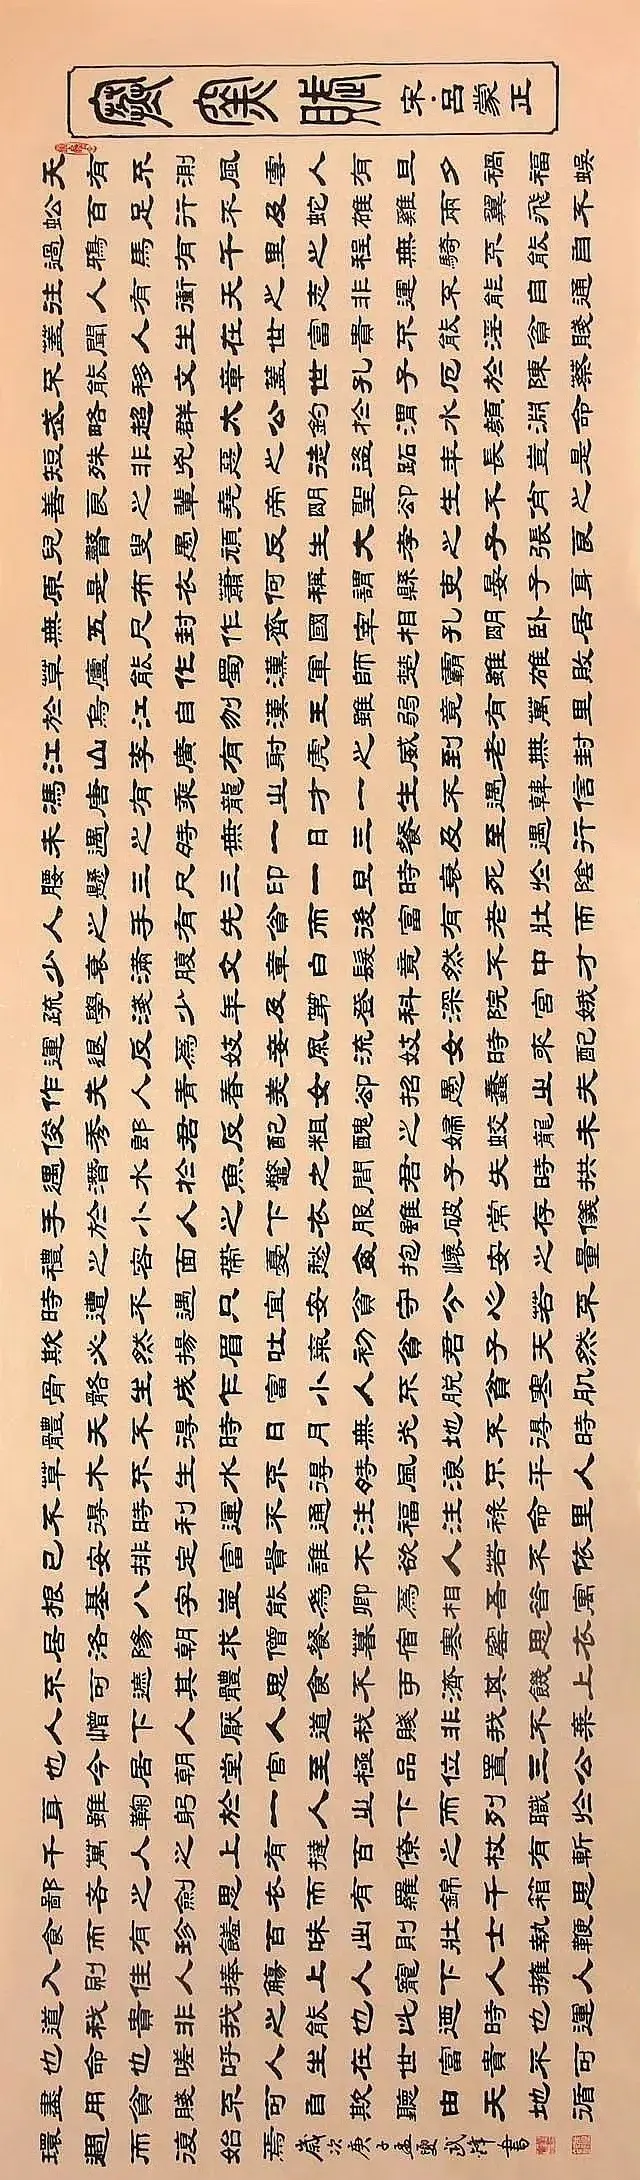 寒窯賦 宋·呂蒙正
天有不測風雲人有旦夕禍福蜈
蚣百足行不及蛇雄雞兩翼飛不
過鴉馬有千里之程無騎不能自
往人有衝天之志非運不能自通
蓋聞人生在世富貴不能淫貧賤
不能移文章蓋世孔子厄於陳蔡
武略超群太公釣於渭水顏淵命
短殊非兇惡之徒盜跖年長豈是
善良之輩堯帝明聖卻生不肖之
兒瞽叟愚頑反生大孝之子張良
原是布衣蕭何稱謂縣吏晏子身
無五尺封作齊國宰相孔明臥居
草廬能作蜀漢軍師楚霸雖雄敗
於烏江自刎漢王雖弱竟有萬里
江山李廣有射虎之威到老無封
馮唐有乘龍之才一生不遇韓信
未遇之時無一日三餐及至遇行
腰懸三尺玉印一旦時衰死於陰
人之手有先貧而後富有老壯而
少衰滿腹文章白髮竟然不中才
疏學淺少年及第登科深院宮娥
運退反為妓妾風流妓女時來配
作夫人青春美女卻招愚蠢之夫
俊秀郎君反配粗醜之婦蛟龍未
遇潛水於魚鱉之間君子失時拱
手於小人之下衣服雖破常存儀
禮之容面帶憂愁衾抱懷安之量
時遭不遇只宜安貧守分心若不
欺必然揚眉吐氣初貧君子天然
骨骼生成乍富小人不脫貧寒肌
體天不得時日月無光地不得時
草木不生水不得時風浪不平人
不得時利運不通注福注祿命里
已安排定富貴誰不欲人若不依
根基八字豈能為卿為相吾昔寓
居洛陽朝求僧餐暮宿寒窰思衣
不可遮其體思食不可濟其饑上
人憎下人厭人道我賤非我不棄
也今居朝堂官至極品位置三公
身雖鞠躬於一人之下而列職於
千萬人之上有撻百僚之杖有斬
鄙吝之劍思衣而有羅錦千箱思
食而有珍饈百味出則壯士執鞭
入則佳人捧觴上人寵下人擁人
道我貴非我之能也此迺時也運
也命也嗟呼人生在世富貴不可
盡用貧賤不可自欺聽由天地循
環週而復始焉
歲次庚子孟夏武鋒書